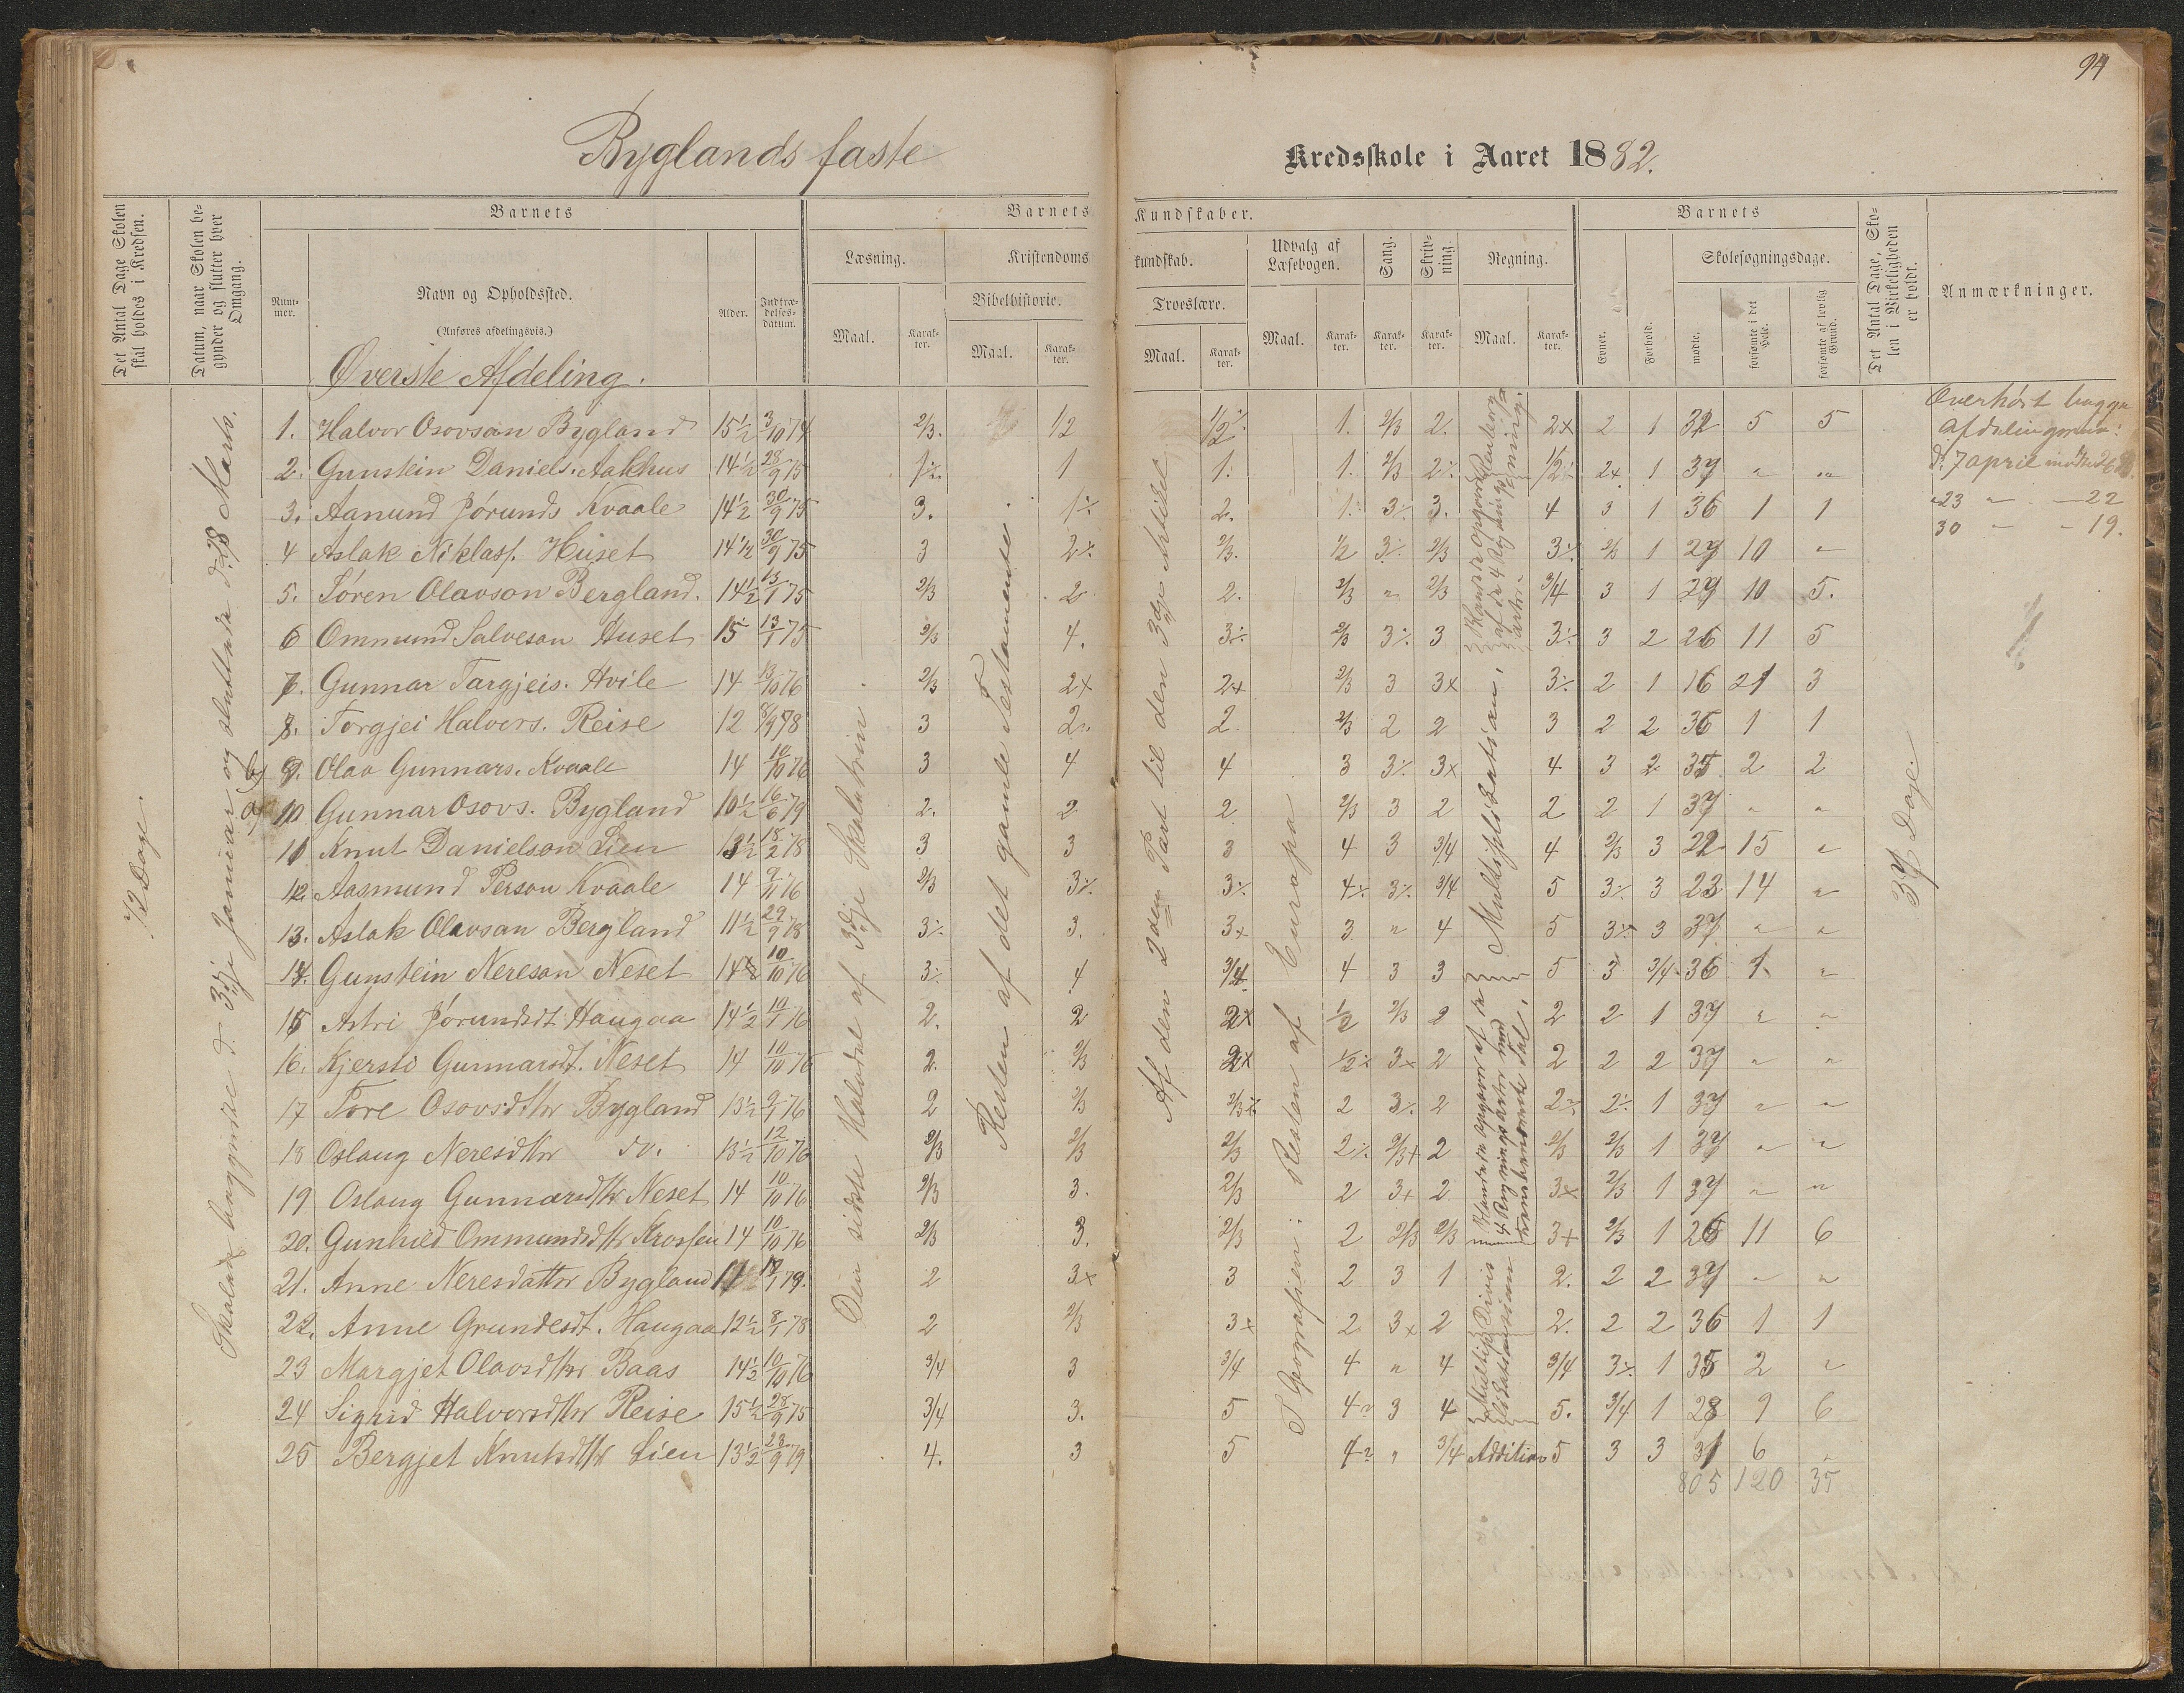 94
Byglands faste Kredsskole i Aaret 1882.
Det Antal Dage Skolen skal holdes i Kredsen.
Datum, naar Skolen begynder og slutter hver Omgang.
Barnets
Nummer.
Navn og Opholdssted.
(Anføres afdelingsvis.)
Alder.
Indtrædelsesdatum.
Barnets Kundskaber.
Læsning.
Maal.
Karakter.
Kristendomskundskab.
Bibelhistorie.
Maal.
Karakter.
Troeslære.
Maal.
Karakter.
Udvalg af Læsebogen.
Maal.
Karakter.
Sang.
Karakter.
Skrivning.
Karakter.
Regning.
Maal.
Karakter.
Barnets
Evner.
Forhold.
Skolesøgningsdage.
mødte.
forsømte i det Hele.
forsømte af lovlig Grund.
Det Antal Dage, Skolen i Virkeligheden er holdt.
Anmærkninger.
Øverste Afdeling.
1. Halvor Osovson Bygland 15½ 3/10 74 2/3. 1/2 1/2 1. 2/3 2. 2x 2 1 32 5 5
2. Gunstein Daniels. Aakhus 14½ 28/9 75 1 1 1. 1. 2/3 1/2 2x 1 37 " "
3. Aanund Jørunds Kvaale 14½ 30/9 75 3. 2. 3. 4 3 1 36 1 1
4 Aslak Niklass. Huset 14½ 30/9 75 3 2/3. 1/2 2/3 1 27 10 "
5. Søren Olavson Bergland. 14½ 13/1 75 2/3 2 2. 2/3 " 2/3 3/4 3 1 27 10 5.
6 Ommund Salveson Huset 15 13/1 75 2/3 4. 2/3 3 3 2 26 11 5
7. Gunnar Targjeis. Hvile 14 13/10 76 2/3 2x 2x 2/3 3 3x 2 1 16 21 3
8. Torgjei Halvors. Reise 12 78 3 2 2 2/3 2 2 3 2 2 36 1 1
9. Olav Gunnars. Kvaale 14 10/10 76 3 4 4 3 3x 4 3 2 35 2 2
10 Gunnar Osovs. Bygland 10½ 16/6 79 2. 2 2 2/3 3 2 2 2 1 37 " "
11. Knut Danielson Lien 13½ 18/2 78 3 3 3 4 3 3/4 4 2/3 3 22 15 "
12. Aasmund Person Kvaale 14 76 2/3 3/4 5 3 23 14 "
13. Aslak Olavson Bergland 11½ 29/9 78 3. 3x 3 " 4 5 3 37 " "
14. Gunstein Nereson Neset 14 10/10 76 4 3/4 4 3 3 5 3 3/4 36 1 "
15 Astri Jørundsdt Haugaa 14½ 76 2. 2 2x 1/2 2/3 2 2 2 1 37 " "
16. Kjersti Gunnarsdt. Neset 14 10/10 76 2. 2/3 2x 3x 2 2 2 2 37 " "
17 Tore Osovsdttr Bygland 13½ 76 2 2/3 2 2 1 37 " "
18 Oslaug Neresdttr do. 13½ 12/10 76 2/3 2/3 2/3 2 2/3 2/3 1 37 " "
19 Oslaug Gunnarsdttr Neset 14 10/10 76 2/3 3. 2/3 2 3x 2 3x 2/3 1 37 " "
20. Gunhild Ommundsdttr Krossen 14 10/10 76 2/3 3. 2/3 2 2/3 2/3 3x 2/3 1 26 11 6
21. Anne Neresdatter Bygland 11 79. 2 3x 3 2 3 1 2. 2 2 37 " "
22. Anne Grundesdt. Haugaa 12½ 8/1 78 2 2/3 3x 2 3x 2 2. 2 2 36 1 1
23 Margjet Olavsdttr Baas 14½ 10/10 76 3/4 3 3/4 4 " 4 3/4 1 35 2 "
24 Sigrid Halvorsdttr Reise 15½ 28/9 75 3/4 3. 5 3 4 5. 3/4 1 28 9 6
25 Bergjet Knutsdttr Lien 13½ 23/9 79 4. 3 5 " 3/4 Addition 5 3 3 31 6 "
805 120 35
72 Dage.
Skolen begyndte d. 3dje Januar og sluttede d. 28 Marts.
b)
a)
Den sidste Halvdel af 3dje Skoletrin.
Resten af det gamle Testamente.
Af den 2den Part til den 3dje Artikel
I Geografien: Resten af Europa
Blandede Opgaver af de 4 Regningsarter.
Multiplikation.
4 Regningsarter med ubenævnte Tal.
37 Dage.
Overhørt begge
afdelingerne:
d. 7 april mødte
23 " — 22
30 " - 19.